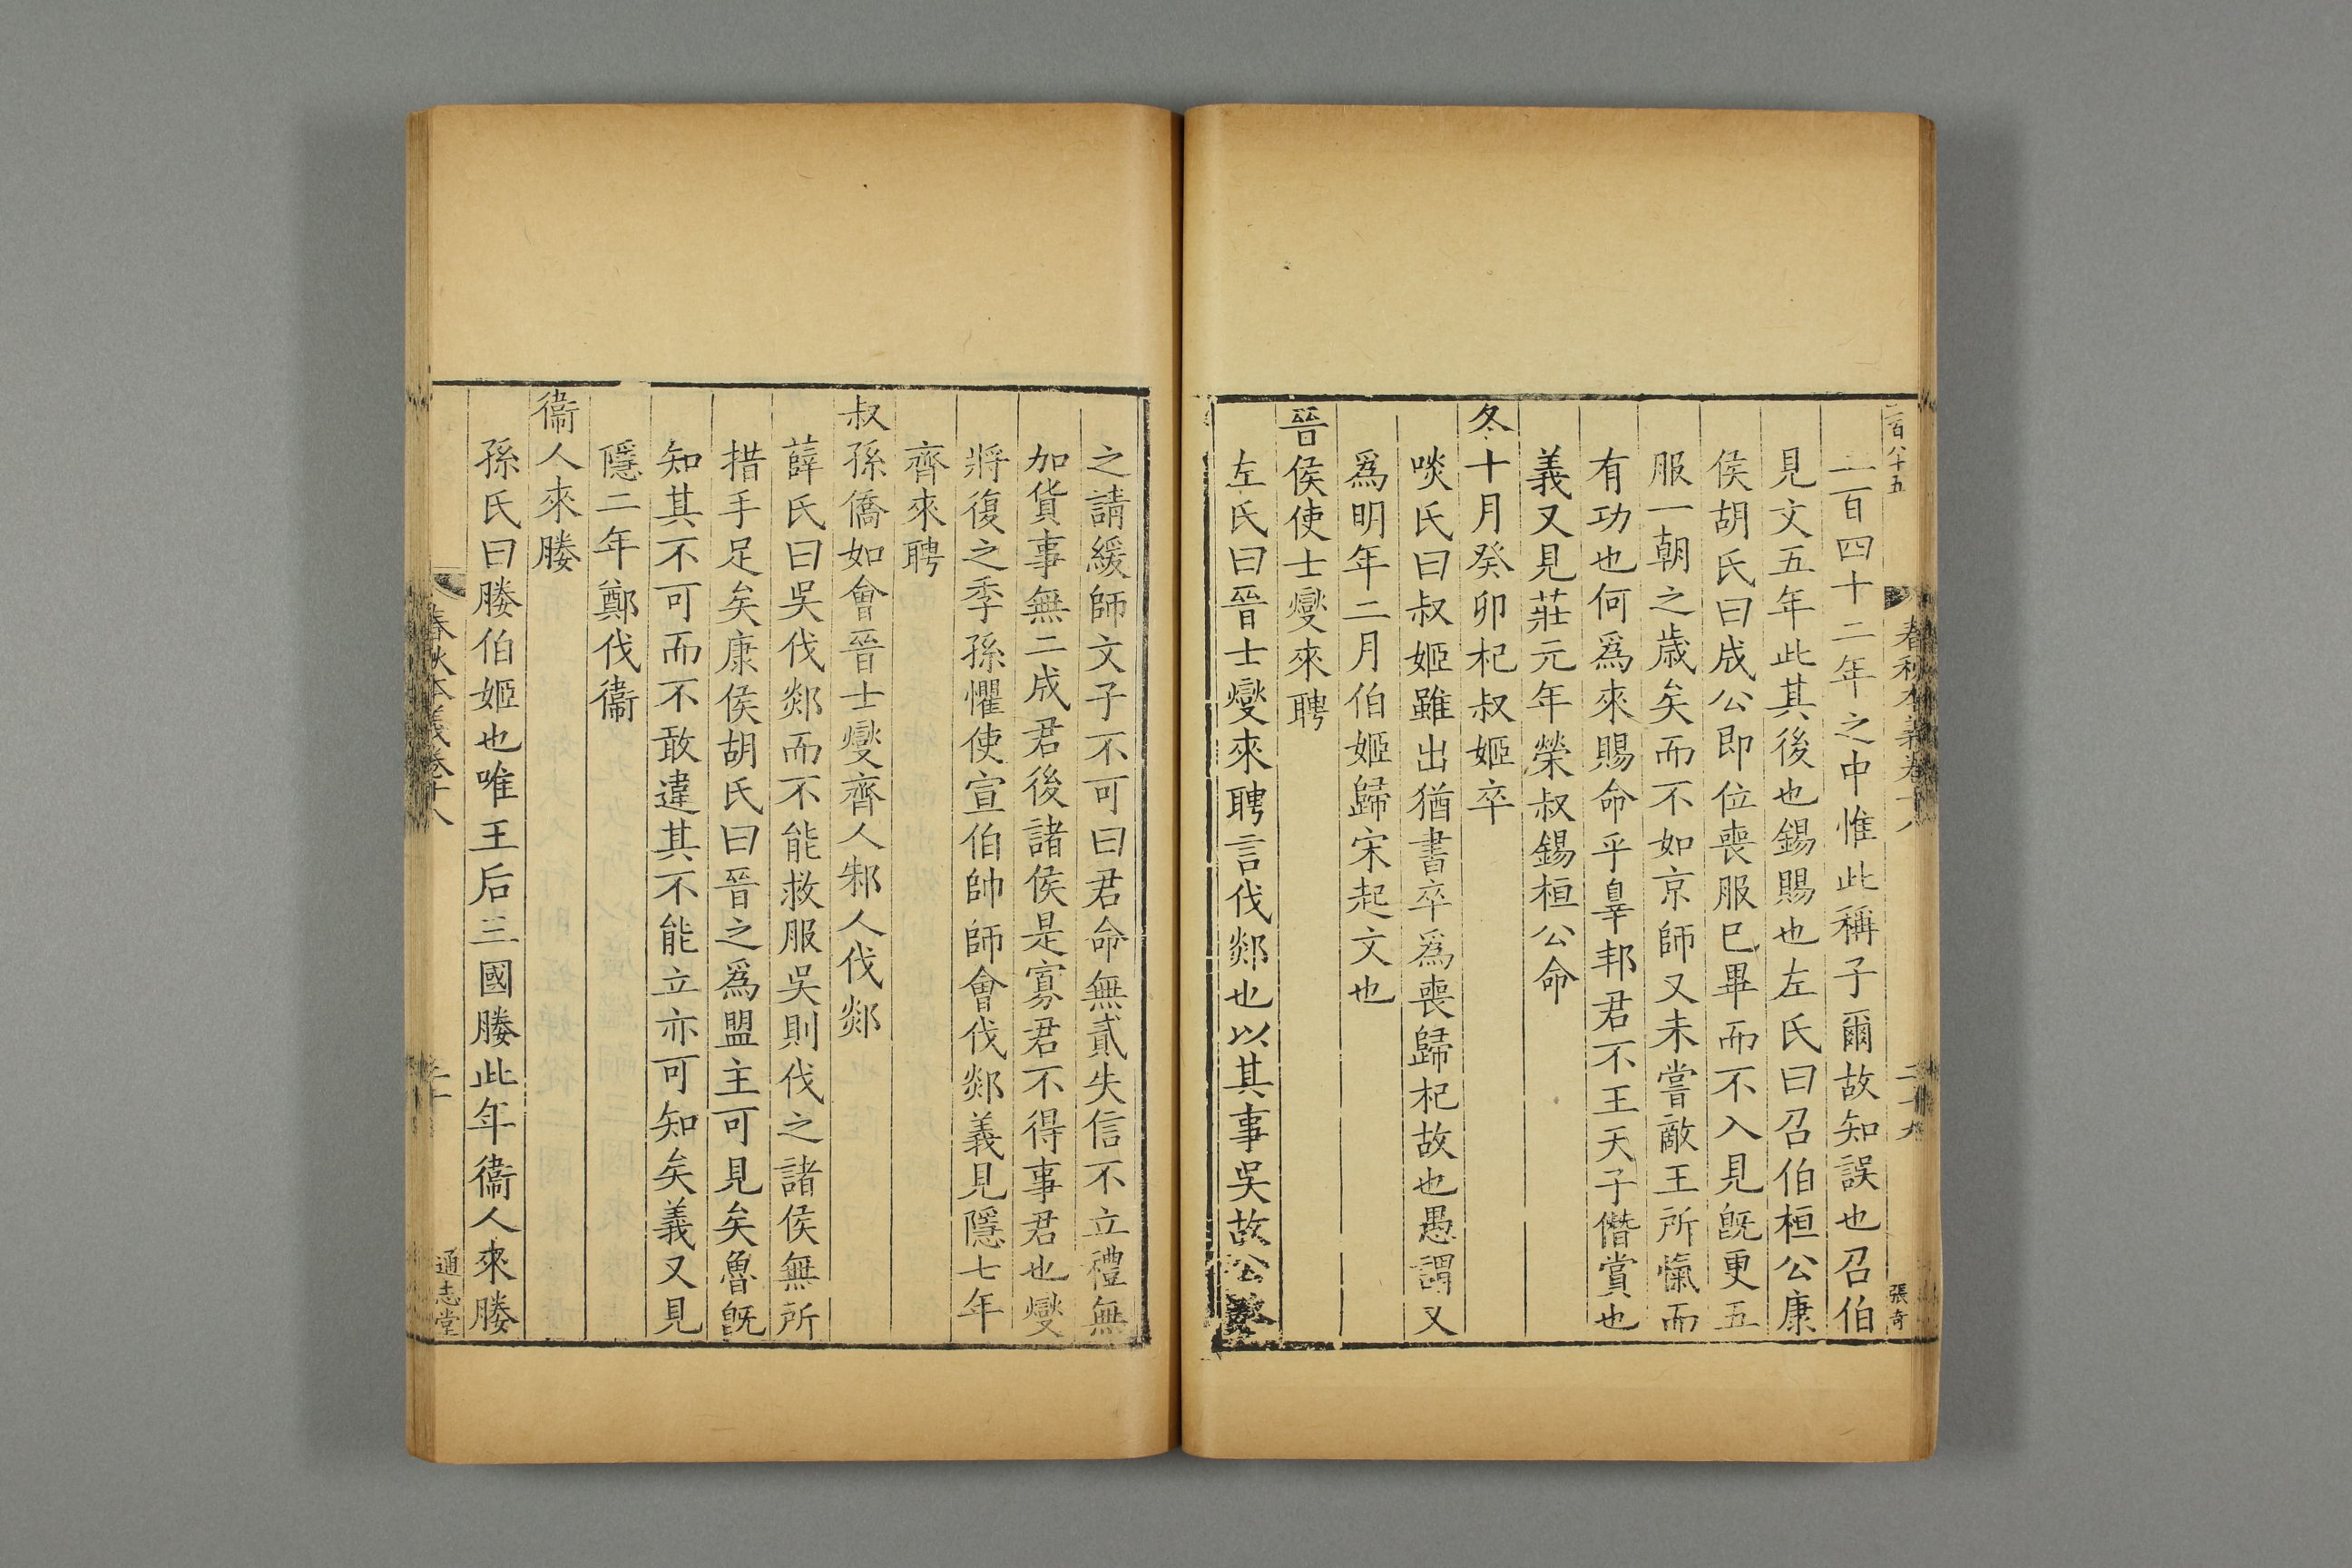 二百八十五
春秋本義卷十八
二十九
張奇
二百四十二年之中惟此稱子爾故知誤也召伯
見文五年此其後也錫賜也左氏曰召伯桓公康
侯胡氏曰成公即位喪服巳畢而不入見旣更五
服一朝之歳矣而不如京師又未嘗敵王所愾而
有功也何爲來賜命乎辠邦君不王天子僭賞也
義又見莊元年榮叔錫桓公命
冬十月癸卯杞叔姬卒
啖氏曰叔姬雖出猶書卒爲喪歸杞故也愚謂又
爲明年二月伯姬歸宋起文也
晉侯使士燮來聘
左氏曰晉士燮來聘言伐郯也以其事吳故公
之請緩師文子不可曰君命無貳失信不立禮無
加貨事無二成君後諸侯是寡君不得事君也燮
將復之季孫懼使宣伯帥師會伐郯義見隱七年
齊來聘
叔孫僑如會晉士燮齊人邾人伐郯
薛氏曰吳伐郯而不能救服吳則伐之諸侯無所
措手足矣康侯胡氏曰晉之爲盟主可見矣魯旣
知其不可而不敢違其不能立亦可知矣義又見
隱二年鄭伐衞
衞人來媵
孫氏曰媵伯姬也唯王后三國媵此年衞人來媵
春秋本義卷十八
三十
通志堂